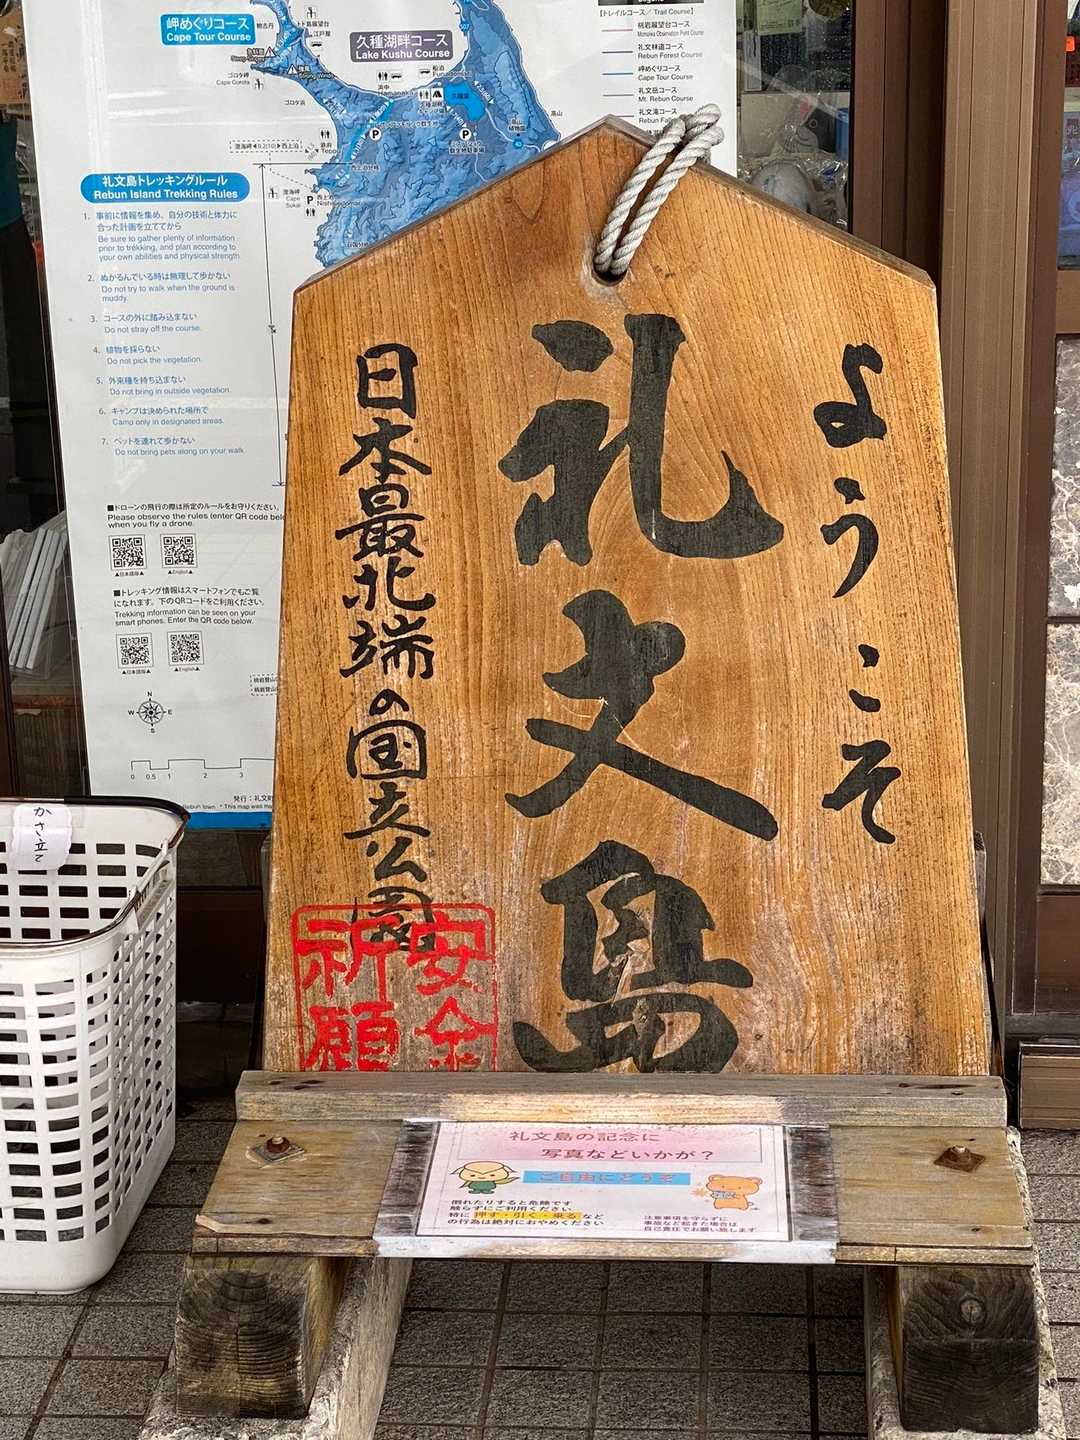 岬めぐりコース
Cape Tour Course
久種湖畔コース
Lake Kushu Course
【トレイルコース／Trail Course】
桃岩展望台コース
Momoiwa Observation Point Course
礼文林道コース
Rebun Forest Course
岬めぐりコース
Cape Tour Course
礼文岳コース
Mt. Rebun Course
礼文滝コース
トド島展望台
江戸屋
ゴロタ岬
Cape Gorota
ゴロタ浜
浜中
Hamanaka
船泊
Funadomari
久種湖
高山
澄海岬
Cape
Sukai
西上泊
礼文島トレッキングルール
Rebun Island Trekking Rules
1. 事前に情報を集め、自分の技術と体力に
合った計画を立ててから
Be sure to gather plenty of information
prior to trekking, and plan according to
your own abilities and physical strength.
2. ぬかるんでいる時は無理して歩かない
Do not try to walk when the ground is
muddy.
3. コースの外に踏み込まない
Do not stray off the course.
4. 植物を採らない
Do not pick the vegetation.
5. 外来種を持ち込まない
Do not bring in outside vegetation.
6. キャンプは決められた場所で
Camp only in designated areas.
7. ペットを連れて歩かない
Do not bring pets along on your walk.
■ドローンの飛行の際は所定のルールをお守りください。
Please observe the rules (enter QR code bel
when you fly a drone.
▲日本語版▲
▲English▲
■トレッキング情報はスマートフォンでもご覧
になれます。下のQRコードをご利用ください。
Trekking information can be seen on your
smart phones. Enter the QR code below.
▲日本語版▲
▲English▲
N
W E
S
0 0.5 1 2 3
発行：礼文町
Rebun town * This map was ma
かさ立て
ようこそ
礼文島
日本最北端の国立公園
安全
祈願
礼文島の記念に
写真などいかが？
ご自由にどうぞ
倒れたりすると危険です
触らずにご利用ください
特に押す・引く・乗るなど
の行為は絶対におやめください
注意事項を守らずに
事故など起きた場合は
自己責任でお願い致します